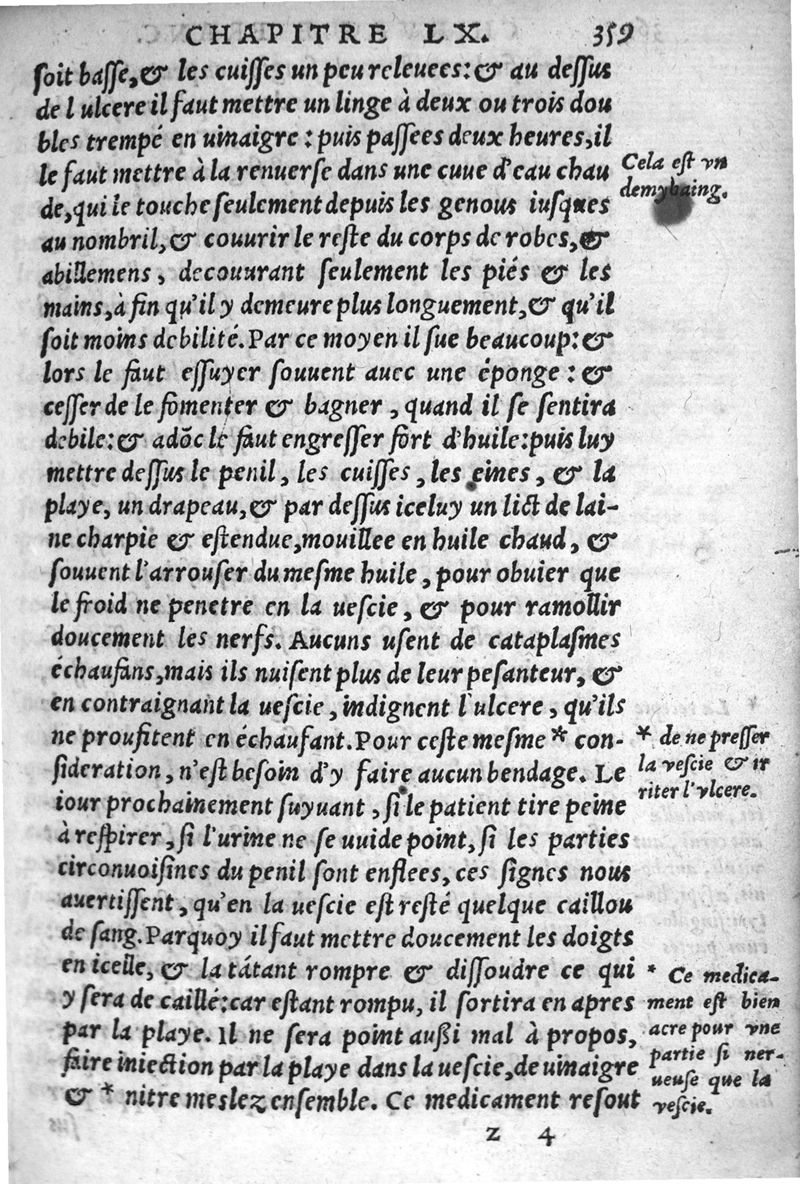 CHAPITRE LX. 359
soit basse, & les cuisses un peu releuees: & au dessus
de l ulcere il faut mettre un linge à deux ou trois dou
bles trempé en uinaigre: puis passees deux heures, il
le faut mettre à la renuerse dans une cuue d'eau chau
de, qui le touche seulement depuis les genous iusques
au nombril, & couurir le reste du corps de robes, &
abillemens, decouurant seulement les piés & les
mains, à fin qu'il y demeure plus longuement, & qu'il
soit moins debilité. Par ce moyen il sue beaucoup: &
lors le faut essuyer souuent auec une éponge: &
cesser de le fomenter & bagner, quand il se sentira
debile: & adõc le faut engresser fort d'huile: puis luy
mettre dessus le penil, les cuisses, les eines, & la
playe, un drapeau, & par dessus iceluy un lict de lai-
ne charpie & estendue, mouillee en huile chaud, &
souuent l'arrouser du mesme huile, pour obuier que
le froid ne penetre en la uescie, & pour ramollir
doucement les nerfs. Aucuns usent de cataplasmes
échaufans, mais ils nuisent plus de leur pesanteur, &
en contraignant la uescie, indignent l'ulcere, qu'ils
ne proufitent en échaufant. Pour ceste mesme * con-
sideration, n'est besoin d'y faire aucun bendage. Le
iour prochainement suyuant, si le patient tire peine
à respirer, si l'urine ne se uuide point, si les parties
circonuoisines du penil sont enflees, ces signes nous
auertissent, qu'en la uescie est resté quelque caillou
de sang. Parquoy il faut mettre doucement les doigts
en icelle, & la tátant rompre & dissoudre ce qui
y sera de caillé: car estant rompu, il sortira en apres
par la playe. Il ne sera point aussi mal à propos,
faire iniection par la playe dans la uescie, de uinaigre
& * nitre meslez ensemble. Ce medicament resout
z 4
Cela est vn
demybaing.
* de ne presser
la vescie & ir
riter l'vlcere.
* Ce medica-
ment est bien
acre pour vne
partie si ner-
ueuse que la
vescie.